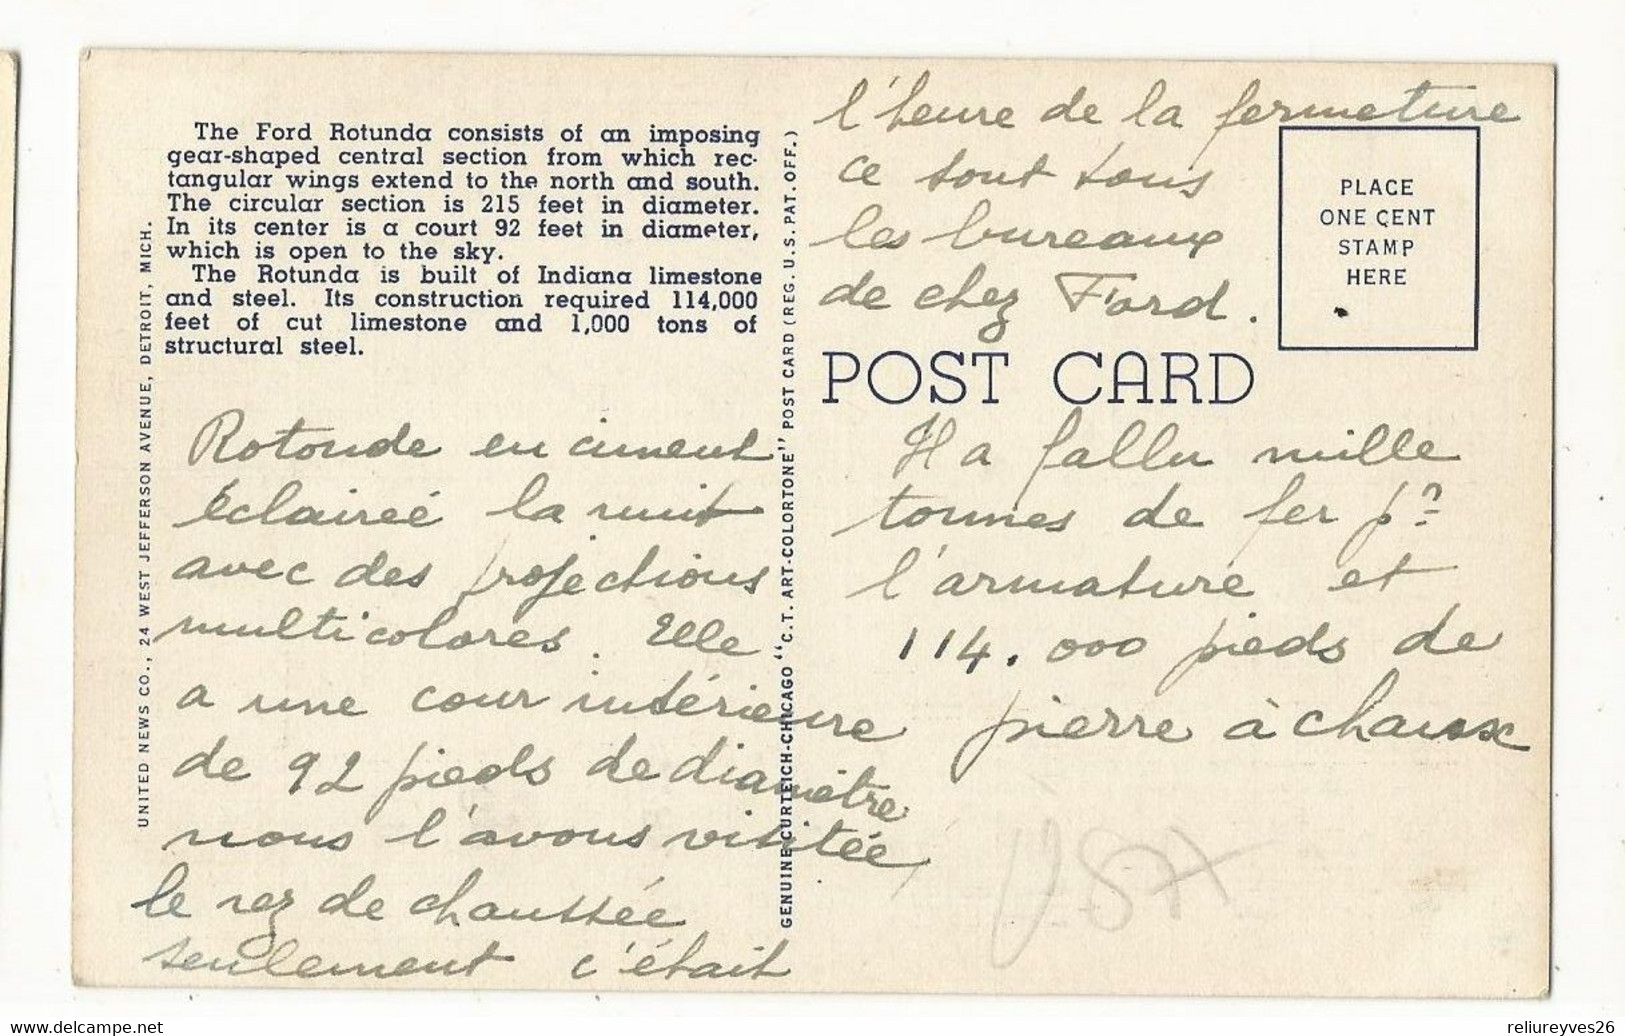 The Ford Rotunda consists of an imposing
gear-shaped central section from which rec-
tangular wings extend to the north and south.
The circular section is 215 feet in diameter.
In its center is a court 92 feet in diameter,
which is open to the sky.
The Rotunda is built of Indiana limestone
and steel. Its construction required 114,000
feet of cut limestone and 1,000 tons of
structural steel.
UNITED NEWS CO., 24 WEST JEFFERSON AVENUE, DETROIT, MICH.
Rotonde en ciment
éclairée la nuit
avec des projections
multicolores. Elle
a une cour intérieure
de 92 pieds de diamètre
nous l'avons visitée
le rez de chaussée
seulement c'était
GENUINE CURTEICH-CHICAGO "C.T. ART-COLORTONE" POST CARD (REG. U.S. PAT. OFF.)
l'heure de la fermeture
ce sont tous
les bureaux
de chez Ford.
PLACE
ONE CENT
STAMP
HERE
POST CARD
Il a fallu mille
tonnes de fer pr
l'armature et
114.000 pieds de
pierre à chaux
USA
www.delcampe.net
reliureyves26